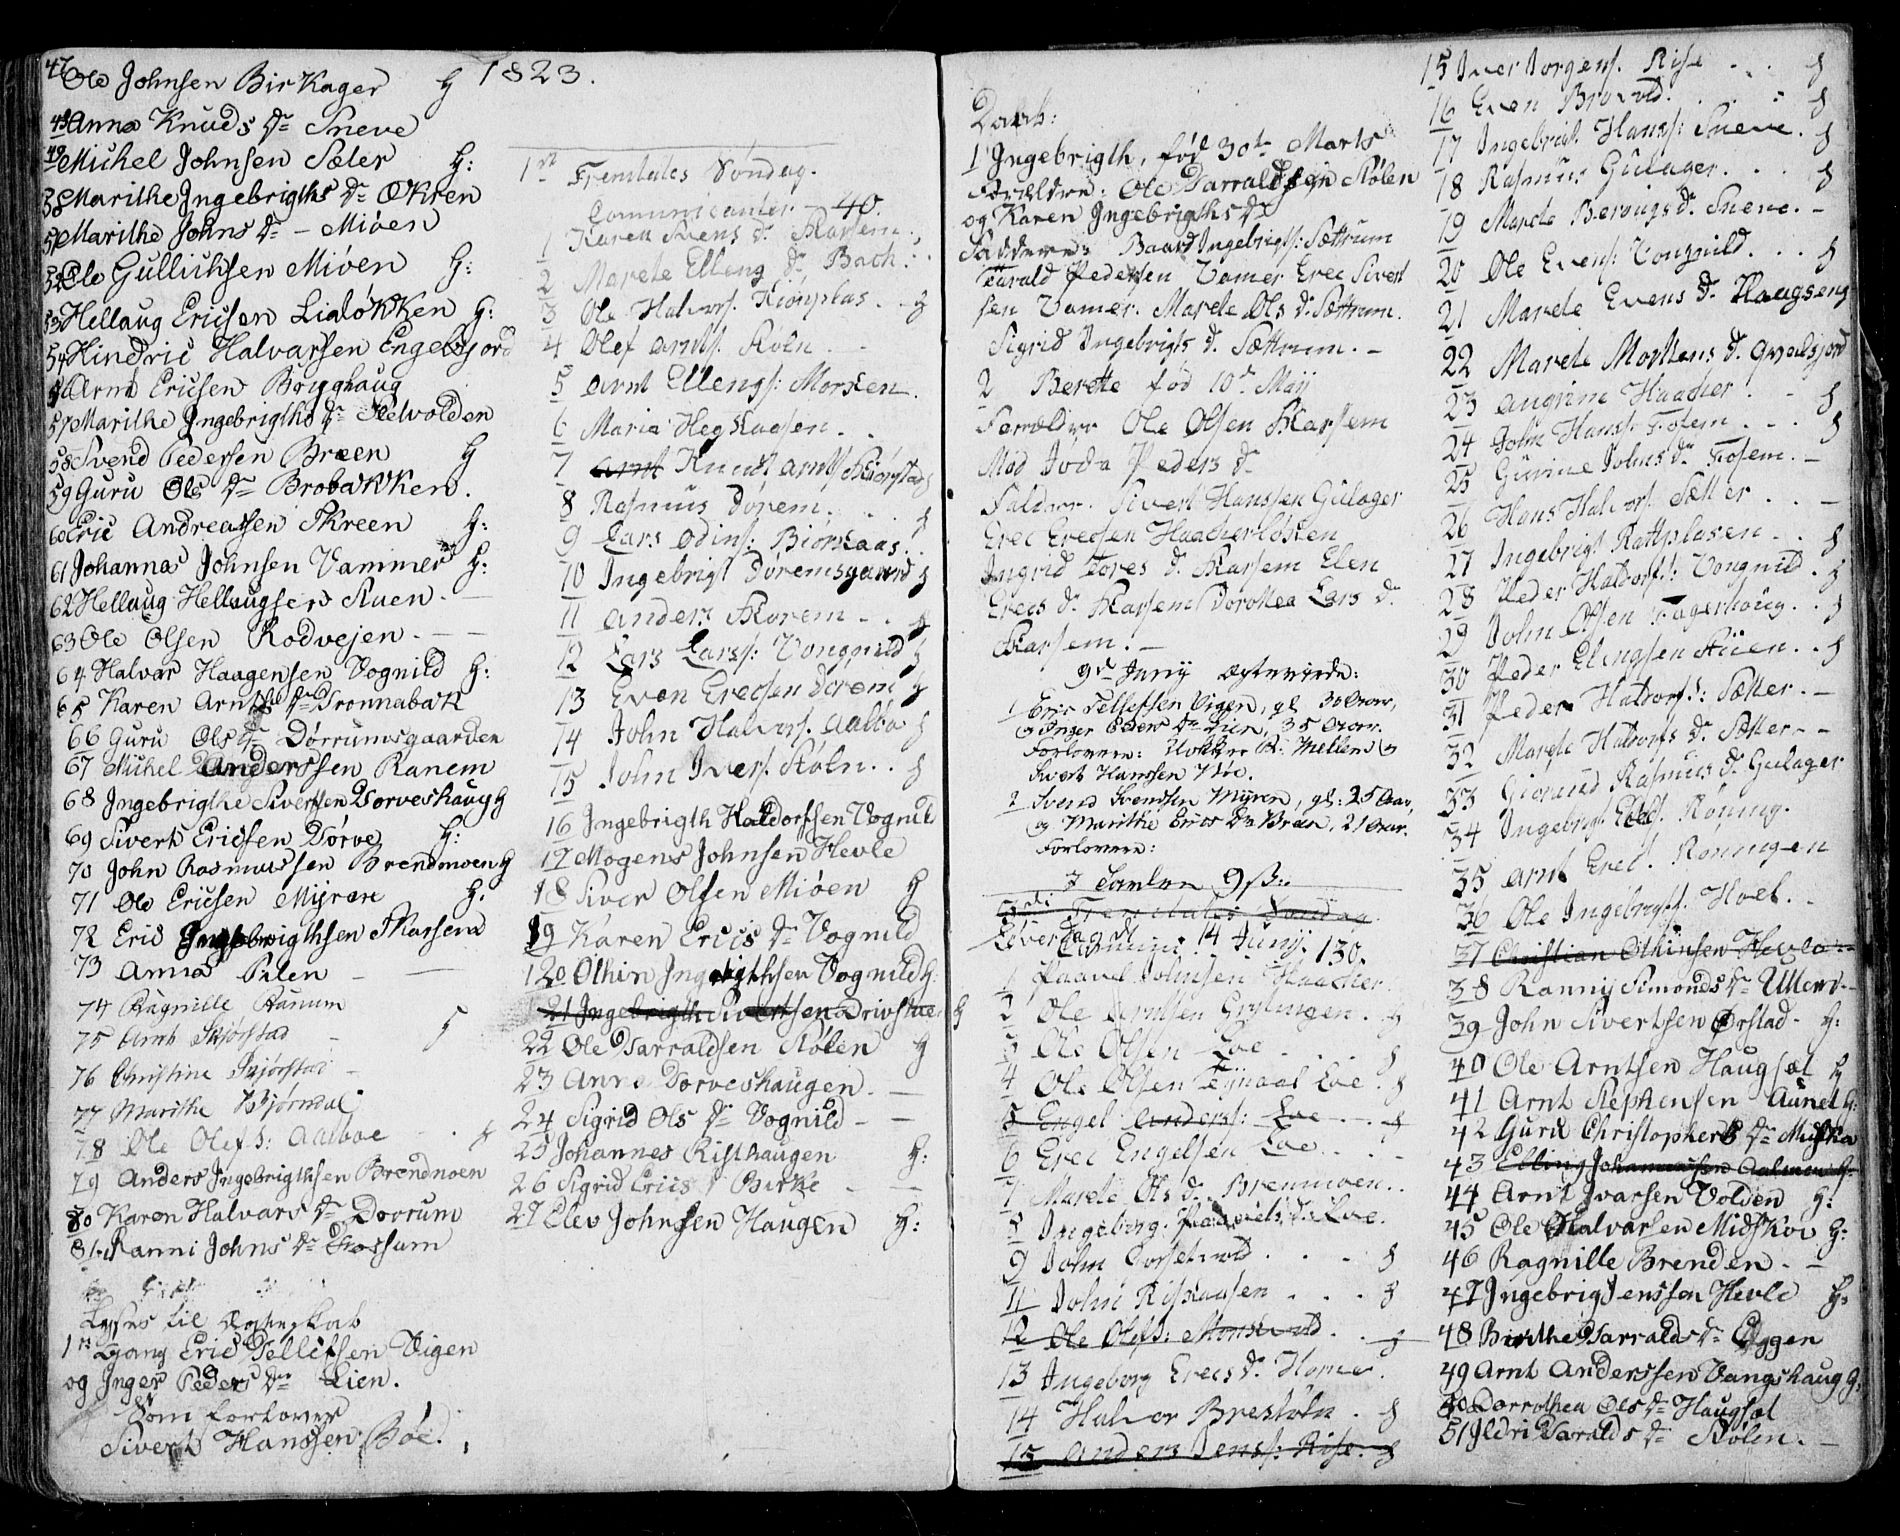 1823.
47 Ole Johnsen Birkager H
48 Anna Knuds Dr Sneve
49 Michel Johnsen Sæter H:
50 Marithe Ingebrigths Dr Økren
51 Marithe Johns Dr - Miøen
52 Ole Gullichsen Miøen H:
53 Hellaug Ericsen Lialøkken H:
54 Hindric Halvarsen Engelsjord
Arnt Ericsen Brygghaug
57 Marithe Ingebrigths Dr Selvolden
58 Svend Pedersen Bræen H
59 Guru Ols Dr Brobakken.
60 Eric Andreassen Skreen H:
61 Johannas Johnsen Vammer H:
62 Hellaug Hellaugsen Stuen. —
63 Ole Olsen Rodvejen. — —
64 Halvar Haagensen Vognild H:
65 Karen Arnts Dr Dronnabak
66 Guru Ols Dr Dørrumsgaarden
67 Michel Anderssen Ranem
68 Ingebrigthe Sivertsen Torveshaug H
69 Sivert Ericsen Dørve H:
70 John Rasmussen Brendmoen H
71 Ole Ericsen Myren H:
72 Eric Ingebrigthsen Skarsem
73 Anna Pelen — —
74 Ragnille Ranum
75 Arnt Skjørstad - H
76 Christine Skjørstad -
77 Marithe Bjørndal
78 Ole Olefs: Aalboe - . H
79 Anders Ingebrigthsen Brendmoen
80 Karen Halvars Dr Dorrum
81. Ranni Johns Dr Fossum
Lyses til Ægteskab
1ste Gang Eric Tellefsen Vigen
og Inger Peders Dr Lien.
Som forlover
Sivert Hanssen Bøe.
1st Fremtales Søndag.
Comunicanter — 40.
1 Karen Svens Dr Skarsem.
2 Marete Ellengs Dr Bach.
3 Ole Halvors. Kiønplas. - H
4 Olef Arnts. Støln. -
5 Arnt Ellengs: Morken.
6 Maria Hegskaasen . .
7 Arnt Knudt Arnts Skiørstad
8 Rasmus Dorem. . H
9 Lars Odins: Biørkaas. .
10 Ingebrigt Doremsgaard H
11 Anders Skorem - . H
12 Lars Larss: Vongnild H
13 Even Erecsen Dorem H
14 John Halvors. Aalbo H
15 John Ivers. Støln . . H
16 Ingebrigth Haldorsen Vognild
17 Mogens Johnsen Hevle
18 Siver Olsen Miøen H
19 Karen Erics Dr Vognild
20 Othin Ingebrigthsen Vognild H.
21 Ingebrigth Sivertsen Drivstuen H
22 Ole Tarraldsen Stølen H
23 Anne Torveshaugen. —
24 Sigrid Ols Dr Vognild - —
25 Johannes Risthaugen H:
26 Sigrid Erics D Birke - —
27 Elev Johnsen Haugen H:
Daab:
1 Ingebrigth, fød 30te Marts
Forældre: Ole Tarraldsen Stølen
og Karen Ingebrigths Dr
Faddere: Baard Ingebrigts: Sættrum
Tarald Pedersen Vamer Erec Sivert
sen Vamer. Marete Ols Dr Sættrum.
Sigrid Ingebrigts D. Sættrum. -
2 Berette fød 10de Maij
Forældre Ole Olsen Skarsem
Mod Joda Peders Dr
Faddere. Sivert Hanssen Gulager
Erec Erecsen Haackerløken
Ingrid Tores D. Skarsem Elen
Erecs Dr Skarsem Dorothea Lars D.
Skarsem. -
9de Junij Ægteviede:
1 Eric Tellefsen Vigen, gl 30 Aar,
og Inger Peders Dr Lien, 35 Aar.
Forlovere: Hr: Mellem og
Sivert Hanssen Bøe.
2 Svend Svendsen Myren, gl: 25 Aar,
og Marithe Erics Dr Bræen, 21 Aar.
Forlovere:
9 ß:
3die Fremtales Søndag
Løverdag d 14 Junij.
Comuni: 130.
1 Paavel Johnsen Haacker
2 Ole Arntsen Gryttingen. H
3 Ole Olsen Loe . . . H
4 Ole Olsen Loe . H
5 Engel Anders: Loe . . . H
6 Erec Engelsen Loe . . .
7 Marete Ols D. Bremmoen. .
8 Ingeborg Paavels D. Loe.
9 John . . . H
11 John Riskaasen . . . H
12 Ole Olefs: . . H
13 Ingeborg Erecs D. Horne.
14 Halvor Brestøln . H
15 Anders Jenss: Rise. H
15 Iver Jorgens. Rise . . . H
16 Even Brovold. . . : H
17 Ingebrigt Hanss: Sneve. H
18 Rasmus Gulager. . . . H
19 Marete Berongs D. Sneve. -
20 Ole Evens: Vongnild. . . H
21 Marete Evens D. Haugseng
22 Marete Mortens D. Qvalsjord
23 Angrim Haacker . - H
24 John Hans: Fosem . . . H
25 Gurine Johns Dr Fosem. -
26 Hans Halvors. Sætter . . -
27 Ingebrigt Rattplasen - . H
28 Peder Haldors: Vongnild . H
29 John Olsen Fagerhoug. . H
30 Peder Elingsen Stuen. . H
31 Peder Haldors: Sætter. -
32 Marete Haldors D. Sætter - -
33 Gjørund Rasmus D. Gulager
34 Ingebrigt Erecs. Røning.
35 Arnt Erecs. Røningen
36 Ole Ingebrigts. Hoel. .
37 Christian Othinsen Hevle -
38 Ranny Simonds Dr Ullen -
39 John Sivertsen Ørstad - H:
40 Ole Arntsen Haugsæt H
41 Arnt Stephensen Aunet H:
42 Guru Christophers Dr Midsko
43 Elling Johannessen Aalmen H:
44 Arnt Ivarsen Volden H:
45 Ole Halvarsen Midskov H:
46 Ragnille Brenden. -
47 Ingebrigt Jenssen Hevle H:
48 Berthe Tarralds Dr Eggen
49 Arnt Anderssen Vangshaug H:
50 Dorrothea Ols Dr Haugsæt
51 Ildri Taralds Dr Stølen. -